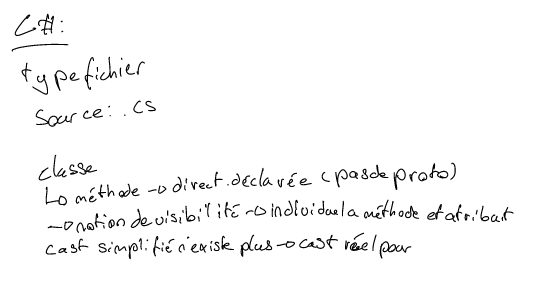 C#:
type fichier
source: .cs
classe
Lo méthode → direct. déclarée (pas de proto)
→ notion de visibilité → individuel a méthode et atribut
cast simplifié n'existe plus → cast réel pour